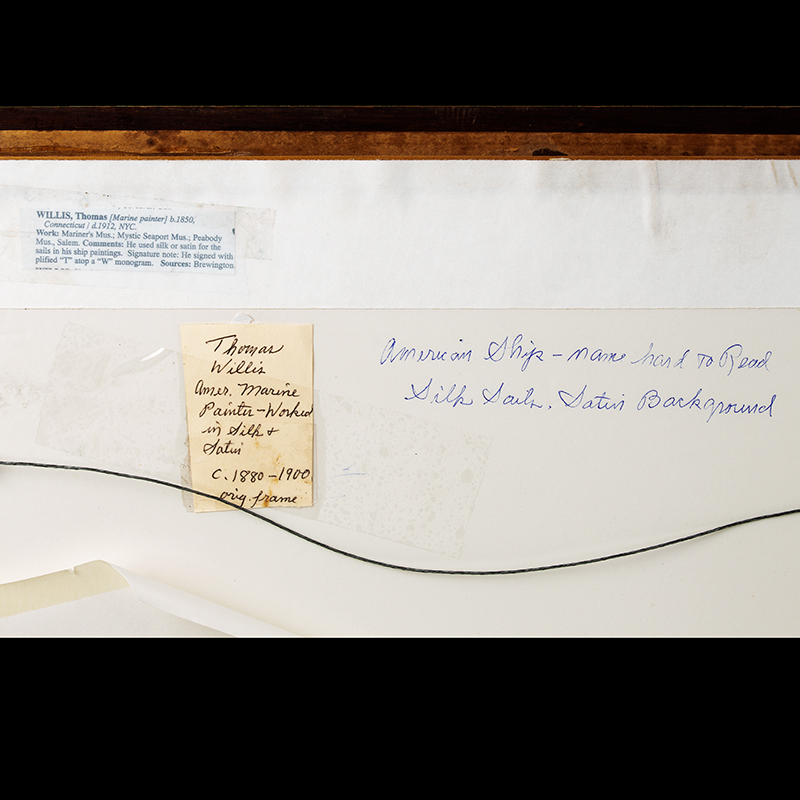 WILLIS, Thomas [Marine painter] b.1850,
Connecticut / d.1912, NYC.
Work: Mariner's Mus.; Mystic Seaport Mus.; Peabody
Mus., Salem. Comments: He used silk or satin for the
sails in his ship paintings. Signature note: He signed with
plified "T" atop a "W" monogram. Sources: Brewington
Thomas
Willis
Amer. Marine
Painter - Worked
in Silk &
Satin
C. 1880 - 1900
orig. frame
American Ship - name hard To Read
Silk Sails. Satin Background